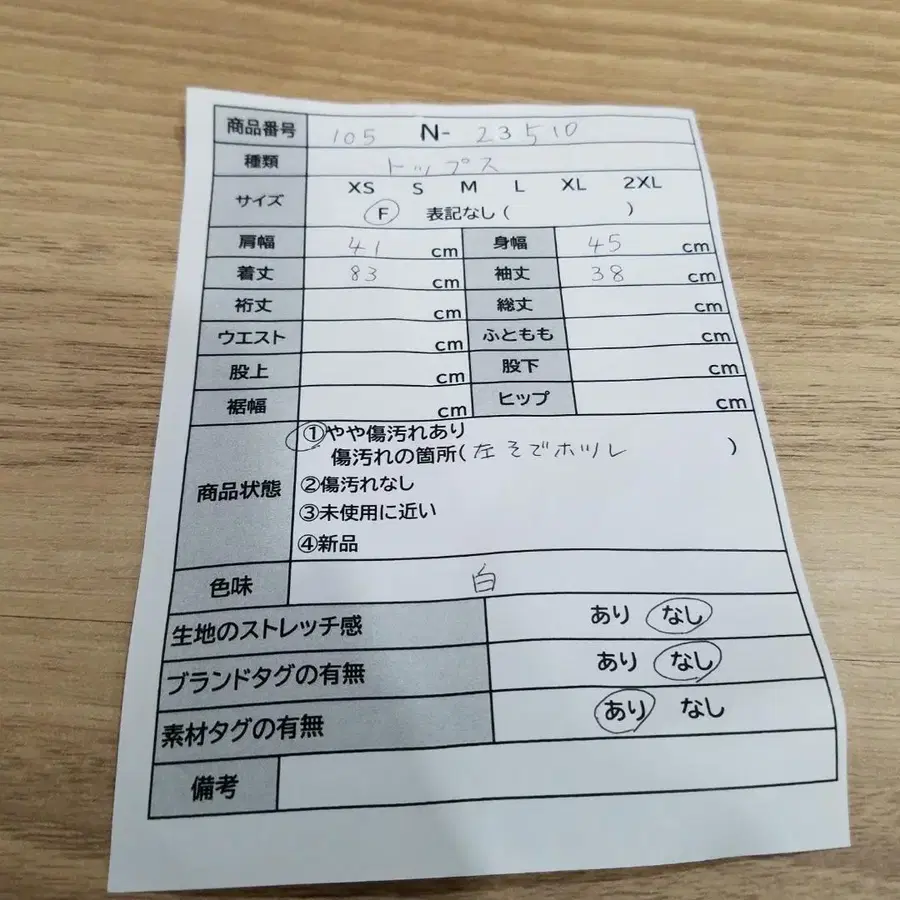 商品番号 105 N- 23510
種類 トップス
サイズ XS S M L XL 2XL
F 表記なし( )
肩幅 41 cm 身幅 45 cm
着丈 83 cm 袖丈 38 cm
裄丈 cm 総丈 cm
ウエスト cm ふともも cm
股上 cm 股下 cm
裾幅 cm ヒップ cm
商品状態 ①やや傷汚れあり
傷汚れの箇所(左そでホツレ )
②傷汚れなし
③未使用に近い
④新品
色味 白
生地のストレッチ感 あり なし
ブランドタグの有無 あり なし
素材タグの有無 あり なし
備考